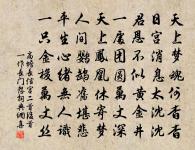 天上夢魂何杳杳
日宮消息太沈沈
君恩不似黃金井
一處團圓萬丈深
天上鳳凰休寄夢
人間鸚鵡舊堪悲
平生心緒無人識
一只金梭萬丈絲
高蟾長信宮二首
一作長門怨